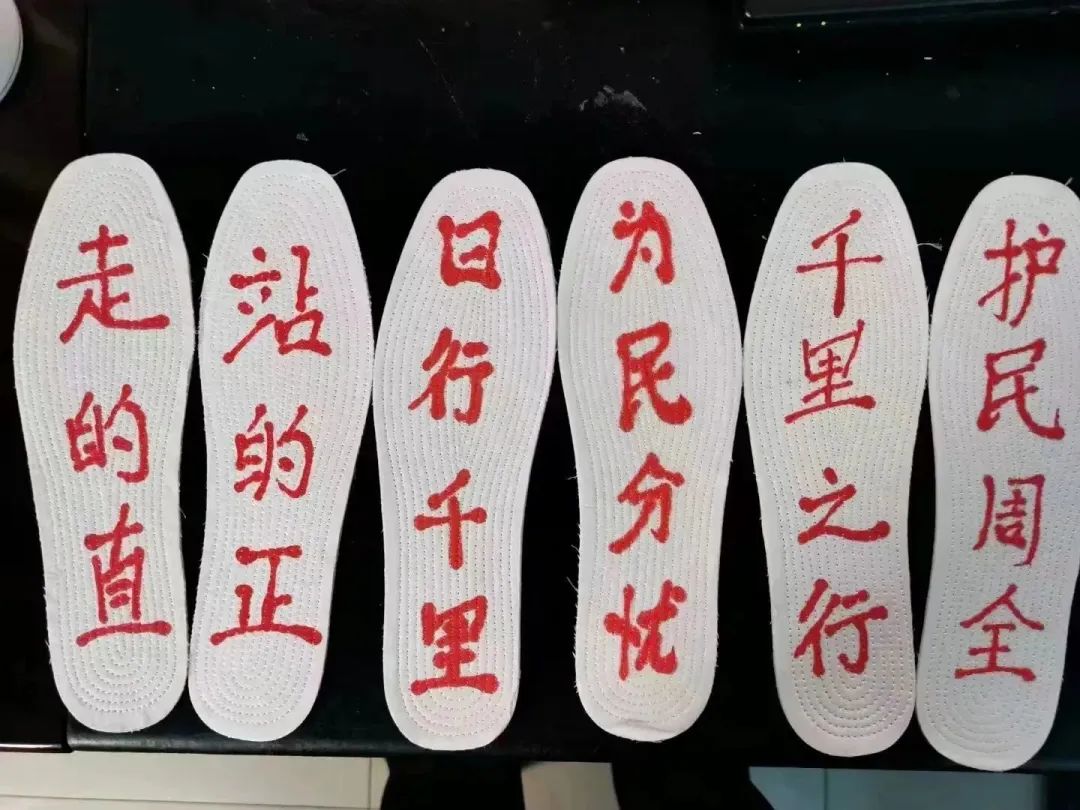 走的直
站的正
日行千里
为民分忧
千里之行
护民周全